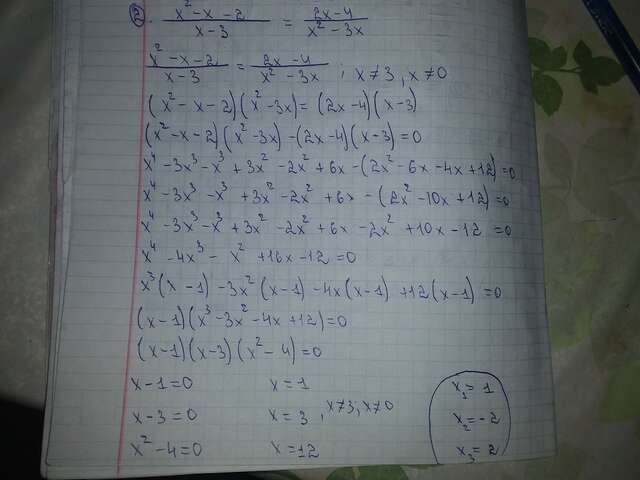 2. (x² - x - 2)/(x - 3) = (2x - 4)/(x² - 3x)
(x² - x - 2)/(x - 3) = (2x - 4)/(x² - 3x) ; x ≠ 3, x ≠ 0
(x² - x - 2)(x² - 3x) = (2x - 4)(x - 3)
(x² - x - 2)(x² - 3x) - (2x - 4)(x - 3) = 0
x⁴ - 3x³ - x³ + 3x² - 2x² + 6x - (2x² - 6x - 4x + 12) = 0
x⁴ - 3x³ - x³ + 3x² - 2x² + 6x - (2x² - 10x + 12) = 0
x⁴ - 3x³ - x³ + 3x² - 2x² + 6x - 2x² + 10x - 12 = 0
x⁴ - 4x³ - x² + 16x - 12 = 0
x³(x - 1) - 3x²(x - 1) - 4x(x - 1) + 12(x - 1) = 0
(x - 1)(x³ - 3x² - 4x + 12) = 0
(x - 1)(x - 3)(x² - 4) = 0
x - 1 = 0 x = 1 x₁ = 1
x - 3 = 0 x = 3, x ≠ 3, x ≠ 0 x₂ = -2
x² - 4 = 0 x = ±2 x₃ = 2